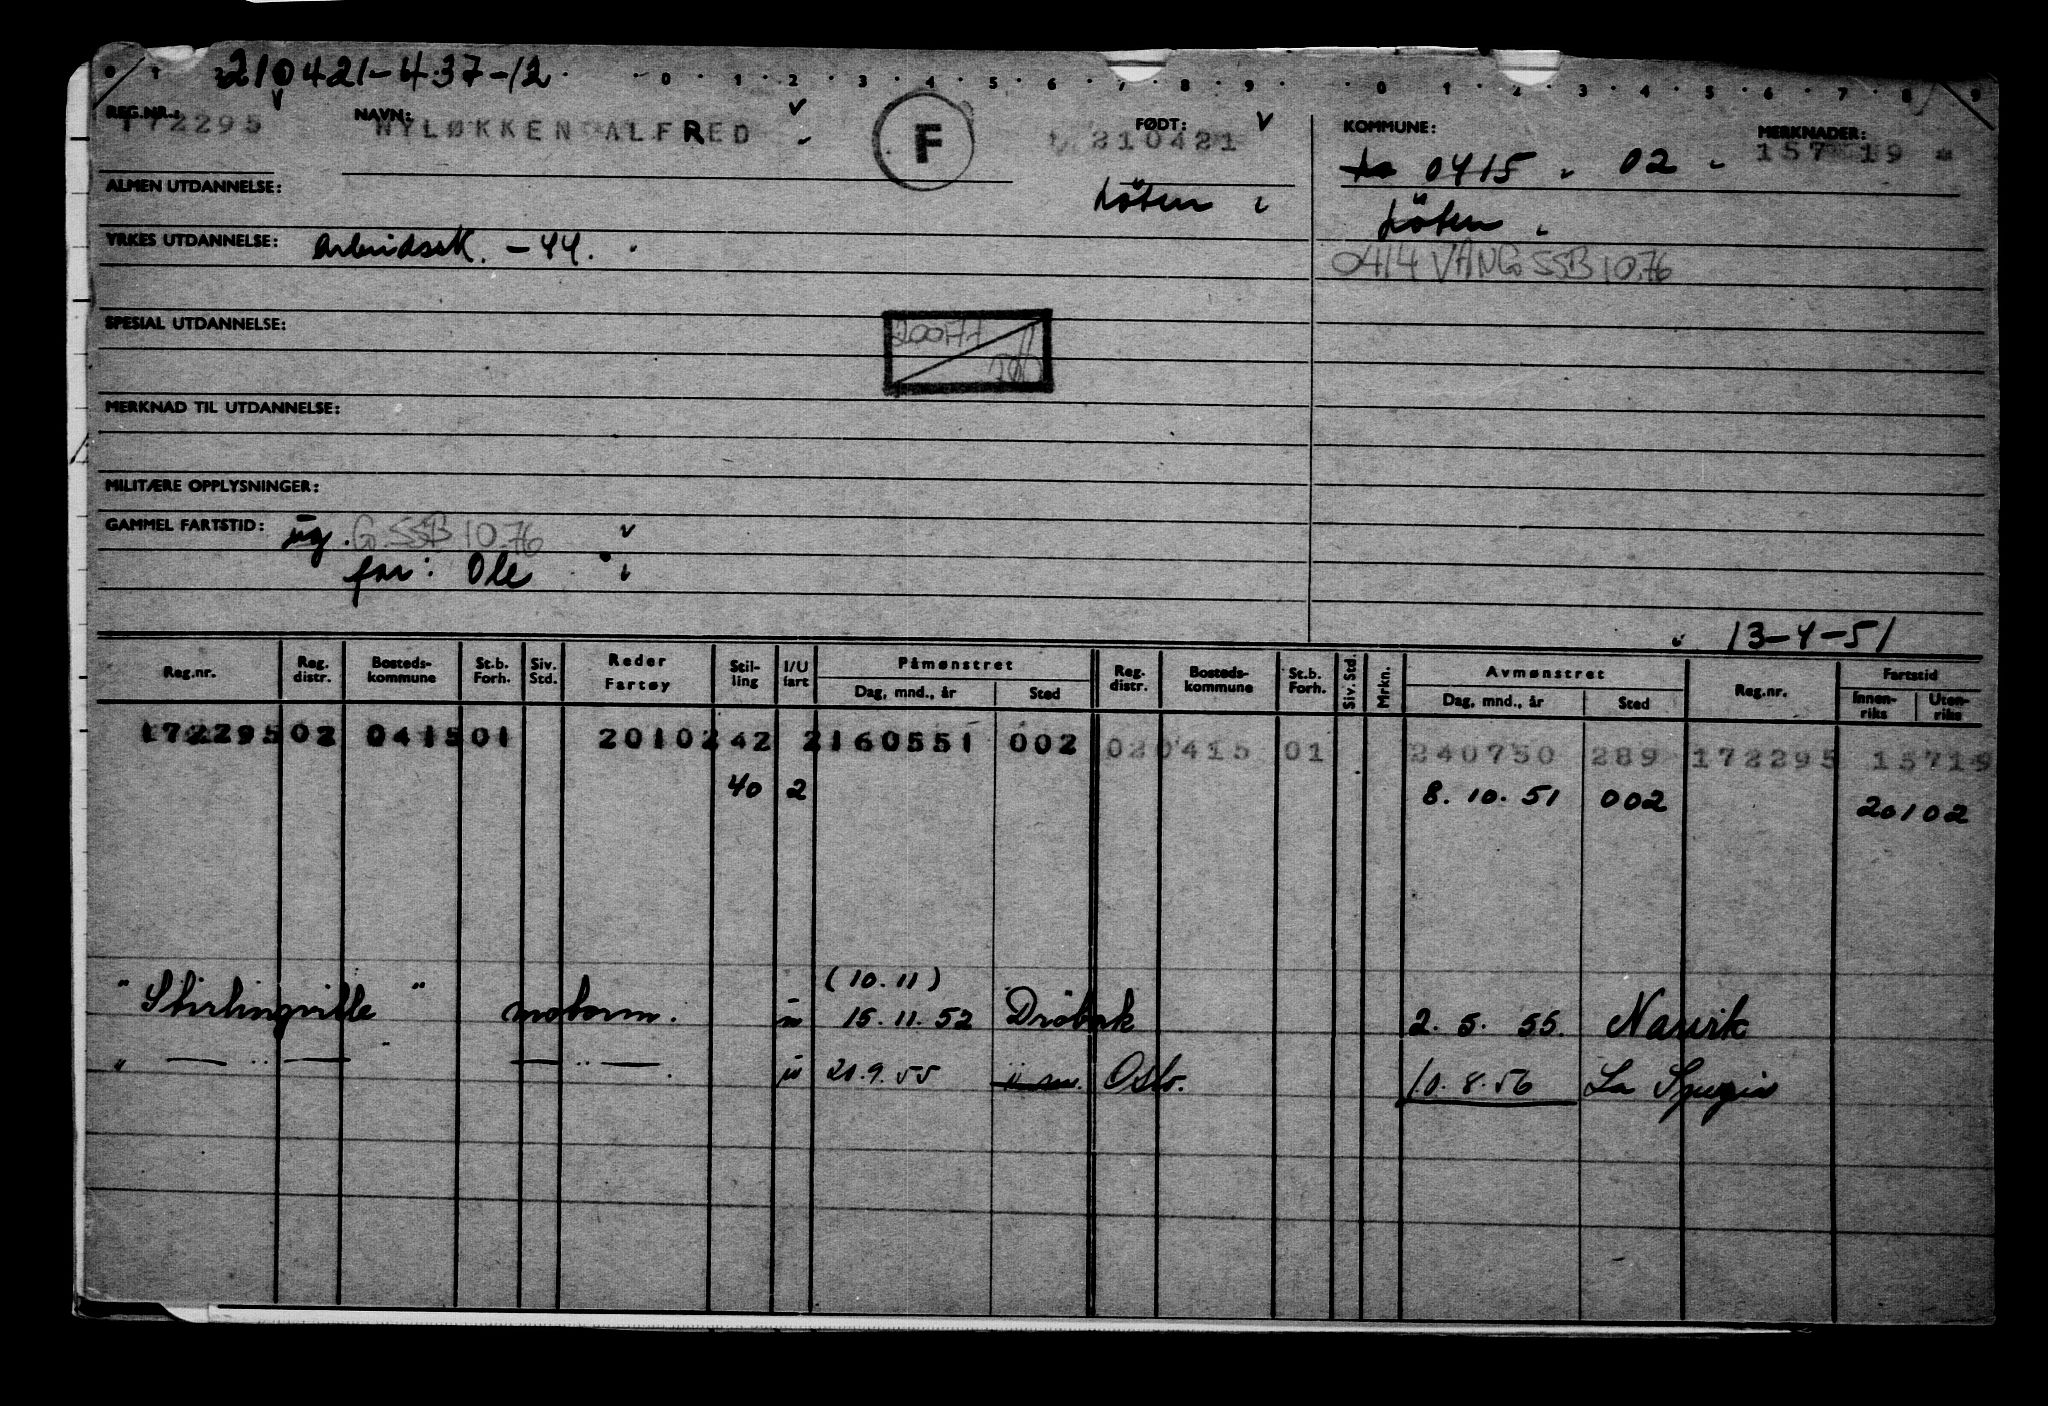 210421-437-12.
0 1 2 · 0 · 1 · 2 · 3 · 4 · 5 · 6 · 7 · 8 · 9 · 0 1 · 2 · 3 · 4 · 5 · 6 · 7 · 8 · 9
REG.NR.: 172295 NAVN: NYLØKKEN ALFRED F FØDT: 210421 KOMMUNE: 0415 02 MERKNADER: 157 19
ALMEN UTDANNELSE: Löten Löten
YRKES UTDANNELSE: arbeidssk. -44. 0414 VANG SSB 10.76
SPESIAL UTDANNELSE:
MERKNAD TIL UTDANNELSE:
MILITÆRE OPPLYSNINGER:
GAMMEL FARTSTID: ug. G. SSB 10.76
far: Ole
13-4-51
Reg.nr. Reg. distr. Bosteds-kommune St.b. Forh. Siv. Std. Reder Fartøy Stil-ling I/U fart Påmønstret Dag, mnd., år Sted Reg. distr. Bosteds-kommune St.b. Forh. Siv. Std. Mrkn. Avmønstret Dag, mnd., år Sted Reg.nr. Fartstid Innen-riks Uten-riks
172295 02 0415 01 20102 42 2 160551 002 02 0415 01 240750 289 172295 15719
40 2 8. 10. 51 002 20102
(10. 11)
" Stirlingville " motorm. u 15. 11. 52 Dröbak 2. 5. 55. Narvik
" — .. — " — .. — . u 21.9.55 Oslo. 10. 8. 56 La Spezia